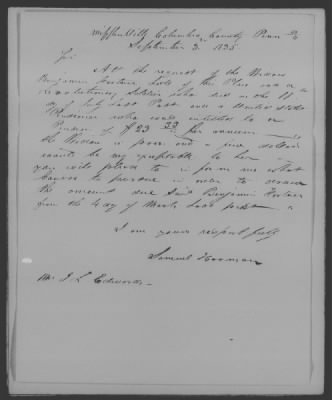 Mifflinville Columbia County Penn
September 3. 1835
Sir,
At the request of the Widow
Benjamin late of this Place was a
revolutionary Soldier who died on the 11
of July last Past and a United States
Pensioner who was entitled to a
Pension of $23 per annum
the Widow is poor and a few dollars
would be very exceptable to her
you will please to inform me what
course to pursue in order to
the amount due Said Benjamin
from the 4 day of March last past
I am yours respectfully
Samuel
Mr J L Edwards